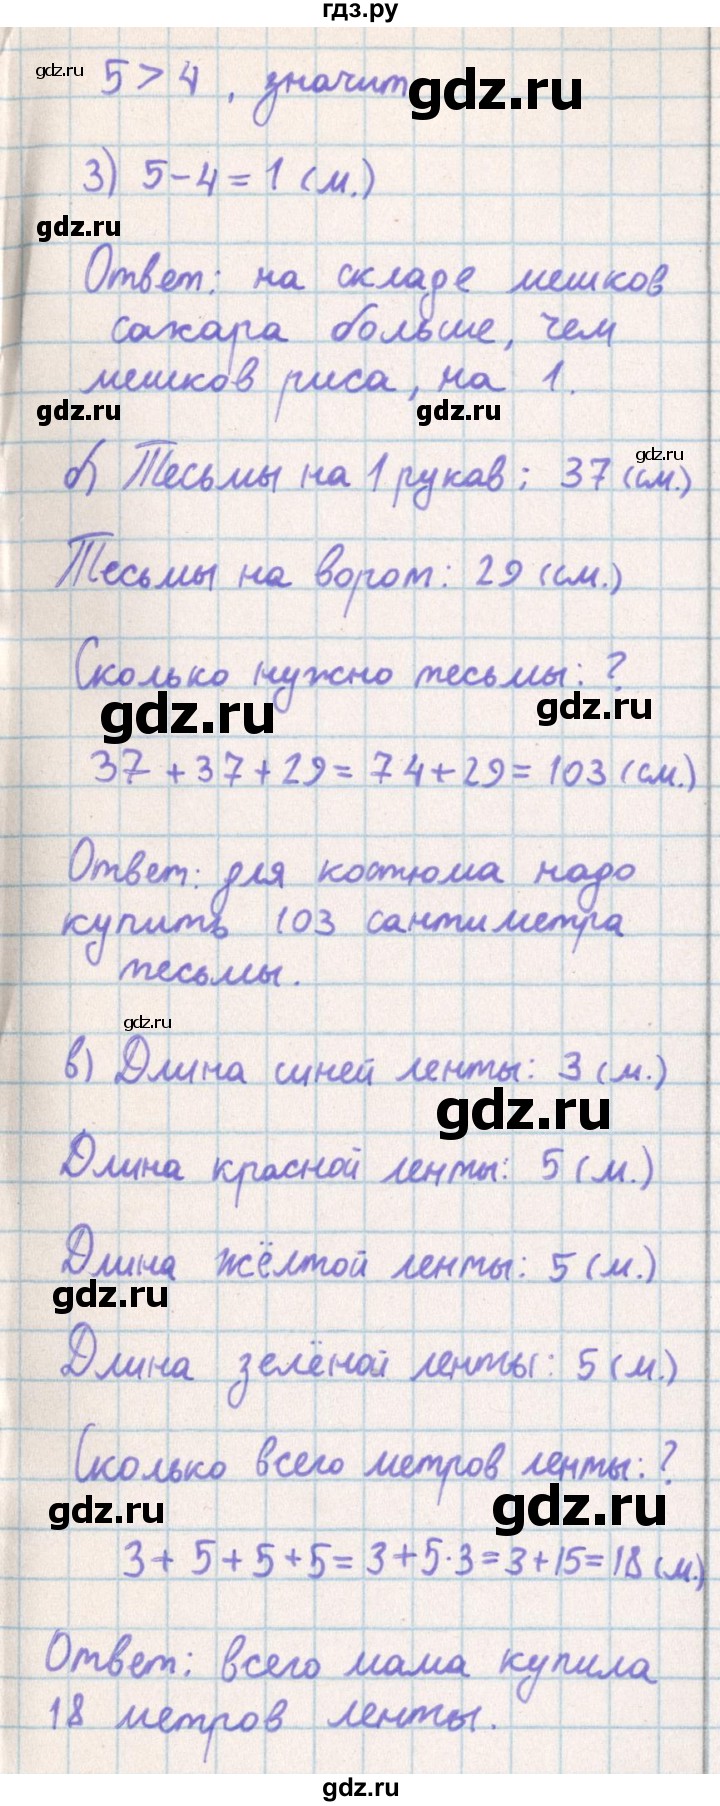 гдз.ру
gdz.ru
5 > 4 , значит
gdz.ru
3) 5 - 4 = 1 (м.)
gdz.ru
Ответ: на складе мешков
сахара больше, чем
мешков риса, на 1.
gdz.ru gdz.ru
gdz.ru
б) Тесьмы на 1 рукав: 37 (см.)
Тесьмы на ворот: 29 (см.)
Сколько нужно тесьмы: ?
gdz.ru gdz.ru
37 + 37 + 29 = 74 + 29 = 103 (см.)
Ответ: для костюма надо
купить 103 сантиметра
тесьмы.
gdz.ru
в) Длина синей ленты: 3 (м.)
gdz.ru
Длина красной ленты: 5 (м.)
Длина жёлтой ленты: 5 (м.)
gdz.ru
Длина зелёной ленты: 5 (м.)
Сколько всего метров ленты: ?
gdz.ru gdz.ru
3 + 5 + 5 + 5 = 3 + 5 · 3 = 3 + 15 = 18 (м.)
Ответ: всего мама купила
18 метров ленты.
gdz.ru